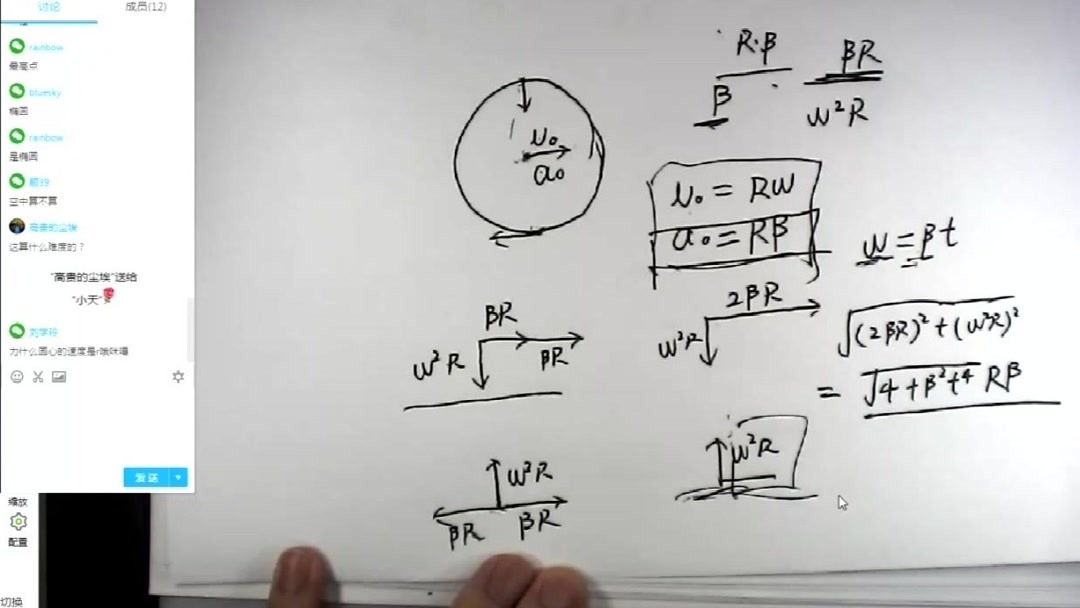 讨论
成员(12)
rainbow
最高点
bluesky
椭圆
rainbow
是椭圆
空中算不算
高贵的尘埃
这算什么难度的？
"高贵的尘埃"送给
"小天"
刘学玲
为什么圆心的速度是r哦咪嘎
发送
缩放
配置
切换
υ₀
a₀
R·β
β
βR
ω²R
υ₀ = Rω
a₀ = Rβ
ω = βt
βR
ω²R
βR
2βR
ω²R
√(2βR)² + (ω²R)²
= √4+β²t⁴ Rβ
ω²R
βR
βR
ω²R